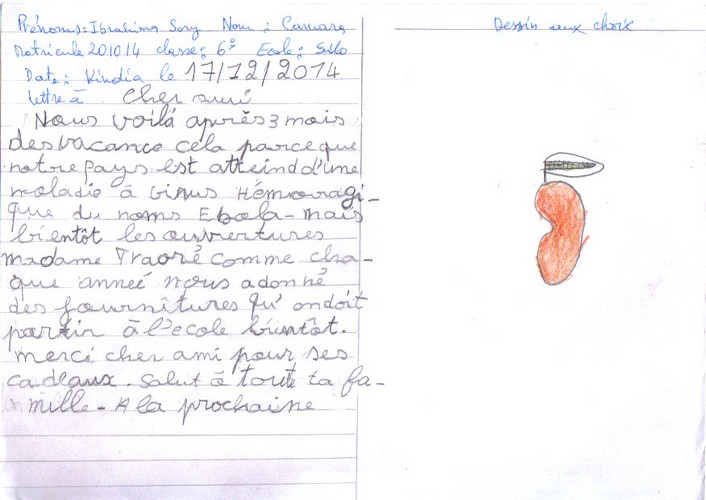 Prénoms: Ibrahima Sory Nom: Camara
Matricule 201014 classe: 6è Ecole: Silo
Date: Kindia le 17/12/2014
lettre à cher ami
Nous voilà après 3 mois
des vacance cela parce que
notre pays est atteind d'une
maladie à virus Hémoragi-
que du noms Ebola- mais
bientôt les ouvertures
madame Traoré comme cha-
que anneé nous a donné
des fournitures qu'on doit
partir à l'ecole bientôt.
merci cher ami pour ses
cadeaux. Salut à toute ta fa-
mille- A la prochaine
Dessin aux choix